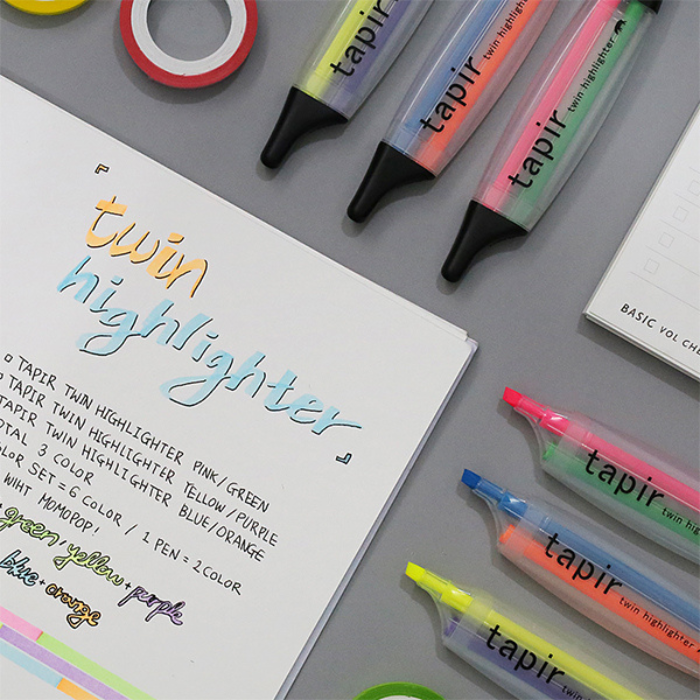 tapir
tapir
twin highlighter
tapir
twin highlighter
twin
highlighter
TAPIR TWIN HIGHLIGHTER PINK/GREEN
TAPIR TWIN HIGHLIGHTER YELLOW/PURPLE
TAPIR TWIN HIGHLIGHTER BLUE/ORANGE
TOTAL 3 COLOR
COLOR SET = 6 COLOR / 1 PEN = 2 COLOR
WIHT MOMOPOP!
green, yellow + purple
blue + orange
BASIC VOL
tapir
tapir
twin highlighter
tapir